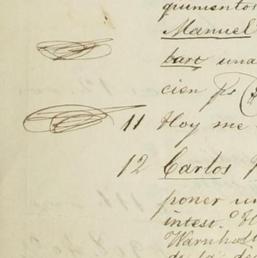 quimentos
Manuel
bart una
cien ps
11 Hoy me
12 Carlos
poner un
intest.
Warnholt